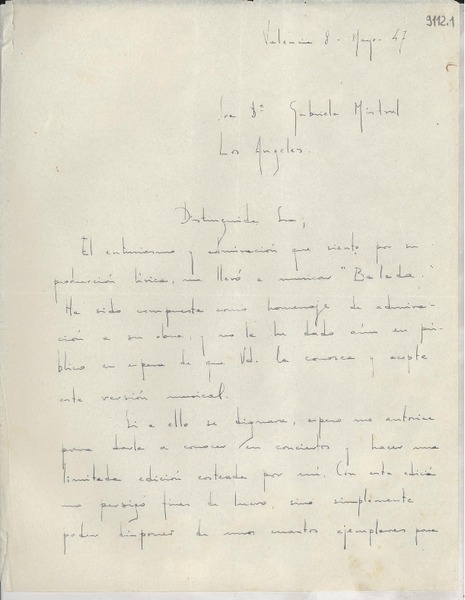 9112.1
Valencia 8 - Mayo - 47
Sra Dª Gabriela Mistral
Los Angeles.
Distinguida Sra;
El entusiasmo y admiración que siento por su
producción lírica, me llevó a musicar "Balada."
Ha sido compuesta como homenaje de admira-
ción a su obra, y no la he dado aún en pú-
blico en espera de que Vd. la conozca y acepte
esta versión musical.
Si a ello se dignara, espero me autorice
para darla a conocer en conciertos y hacer una
limitada edición costeada por mí. Con esta edición
no persigo fines de lucro, sino simplemente
poder disponer de unos cuantos ejemplares para